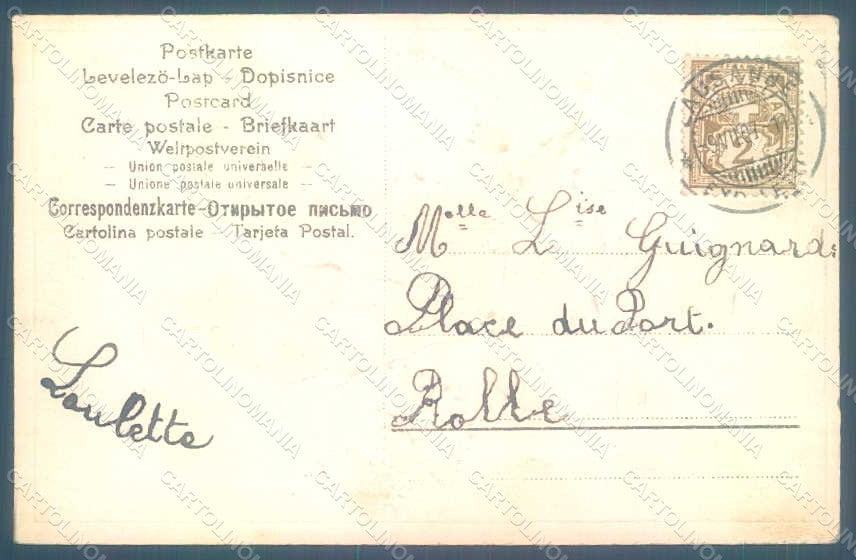 Postkarte
Levelező-Lap - Dopisnice
Postcard
Carte postale - Briefkaart
Weltpostverein
-- Union postale universelle --
-- Unione postale universale --
Correspondenzkarte-Открытое письмо
Cartolina postale -- Tarjeta Postal.
LAUSANNE
2
Melle Lise Guignard:
Place du Port.
Rolle
Loulette
CARTOLINOMANIA